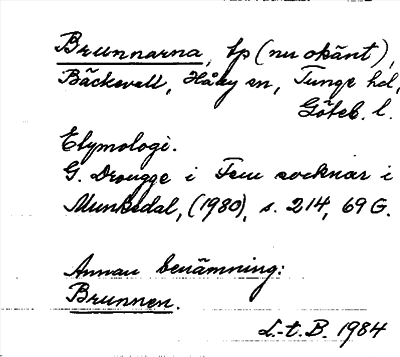 Brunnarna, tp (nu okänt),
Bäckevall, Håby sn, Tunge hd,
Göteb. l.
Etymologi.
G. Drougge i Fem socknar i
Munkedal, (1980), s. 214, 69 G.
Annan benämning:
Brunnen.
L-t. B. 1984